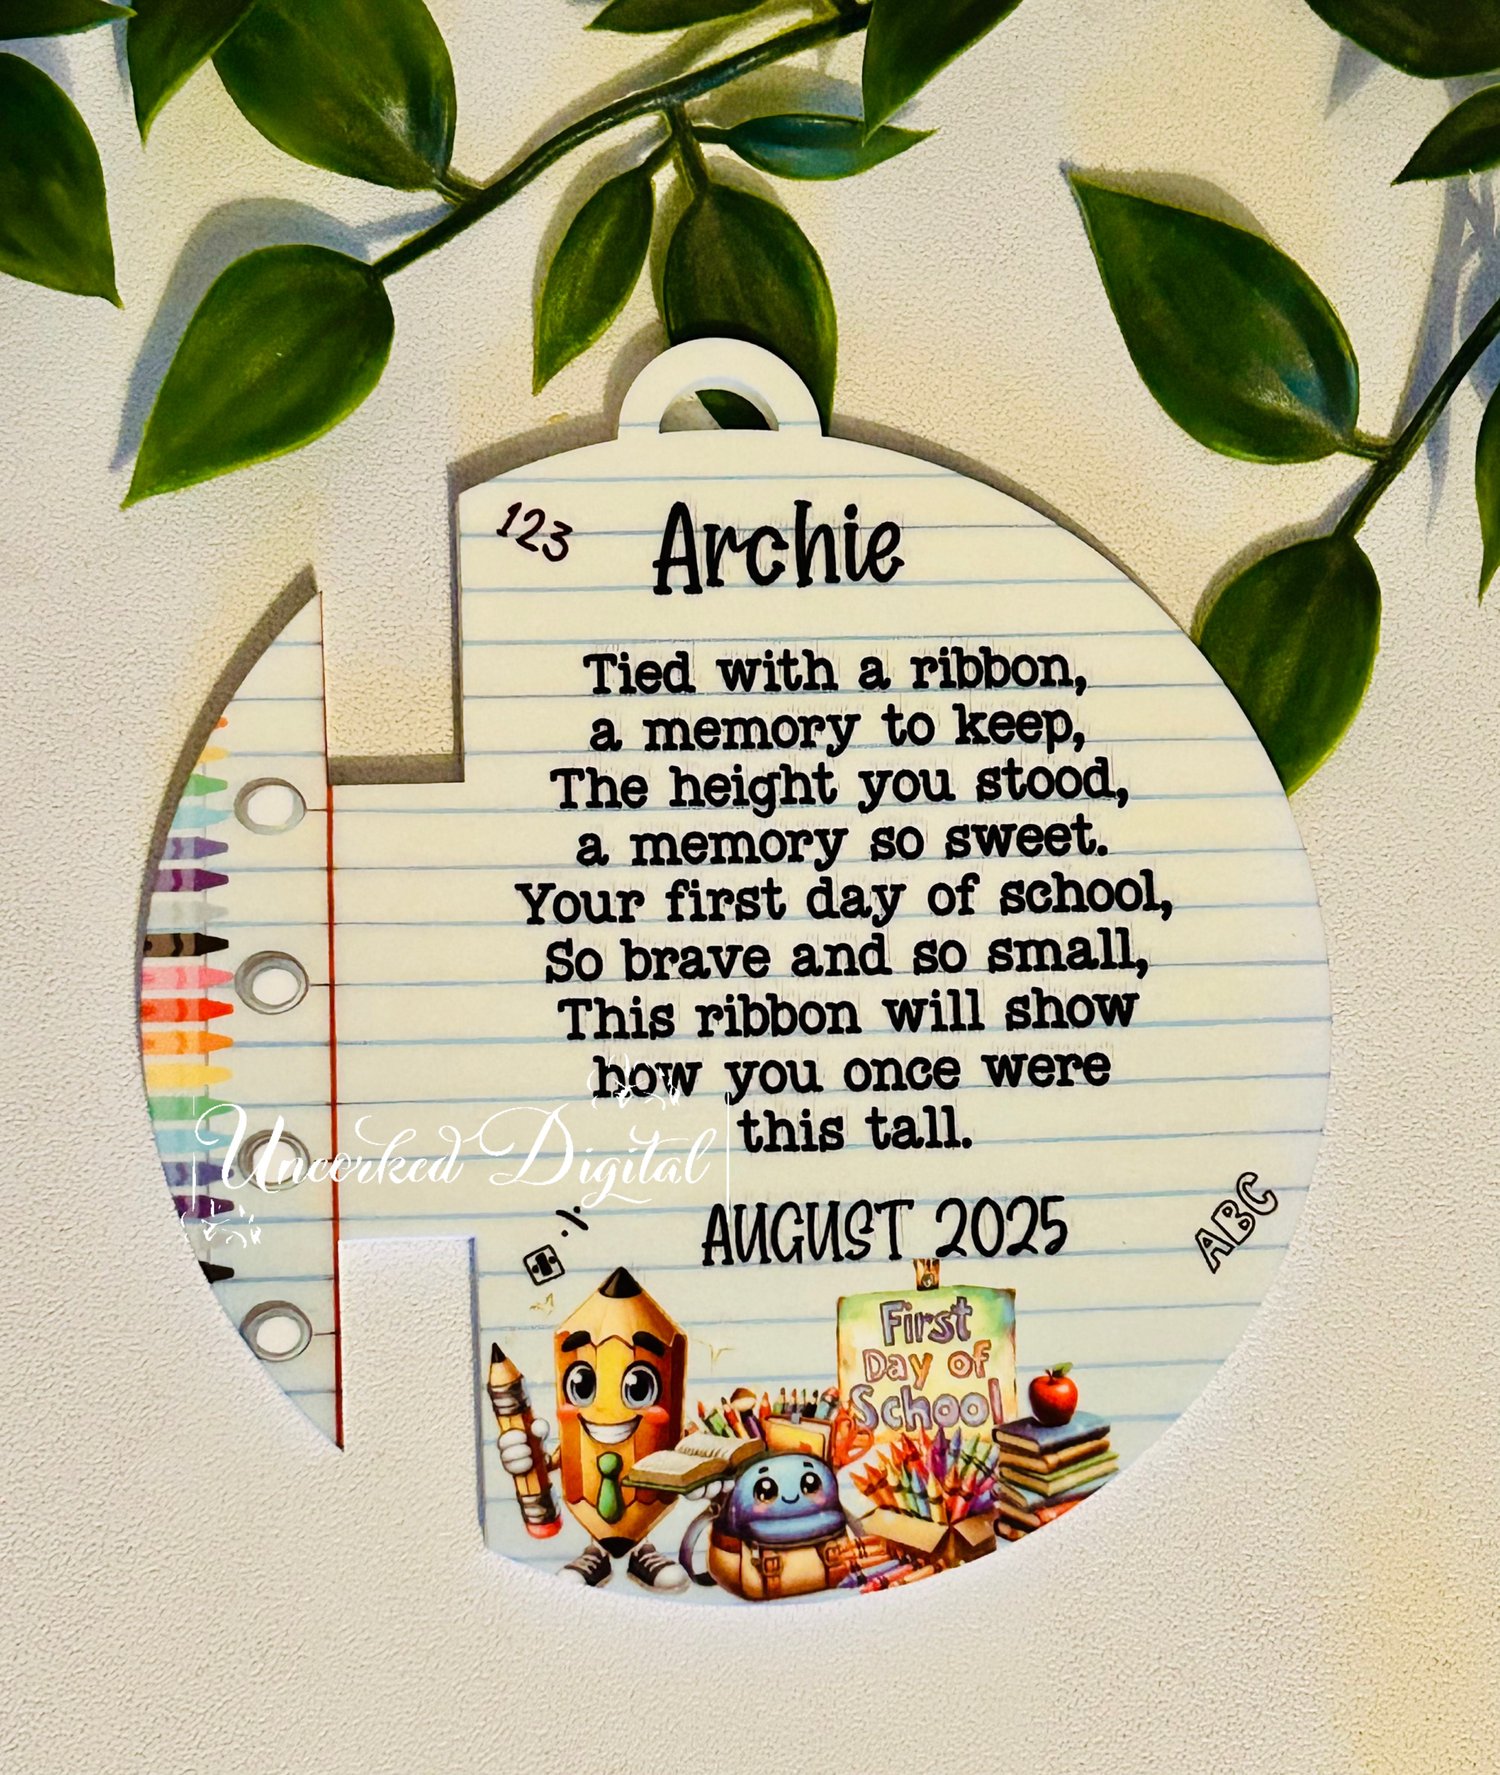 123
Archie
Tied with a ribbon,
a memory to keep,
The height you stood,
a memory so sweet.
Your first day of school,
So brave and so small,
This ribbon will show
how you once were
this tall.
Uncorked Digital
AUGUST 2025
ABC
First
Day of
School